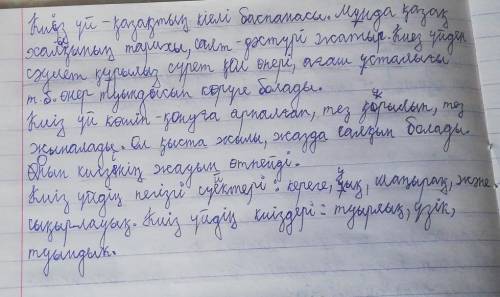 Киіз үй - қазақтың киелі баспанасы. Мұнда қазақ
халқының тарихы, салт-дәстүрі жатыр. Киіз үйден
сәулет құрылыс сурет қол өнері, ағаш ұсталығы
т.б. өнер туындысын көруге болады.
Киіз үй көшіп-қонуға арналған, тез құрылып, тез
жиналады. Ол қыста жылы, жазда салқын болады.
Оның киізінің жауын өтпейді.
Киіз үйдің негізгі сүйектері: кереге, уық, шаңырақ, және
сықырлауық. Киіз үйдің киіздері: туырлық, үзік,
түңдік.